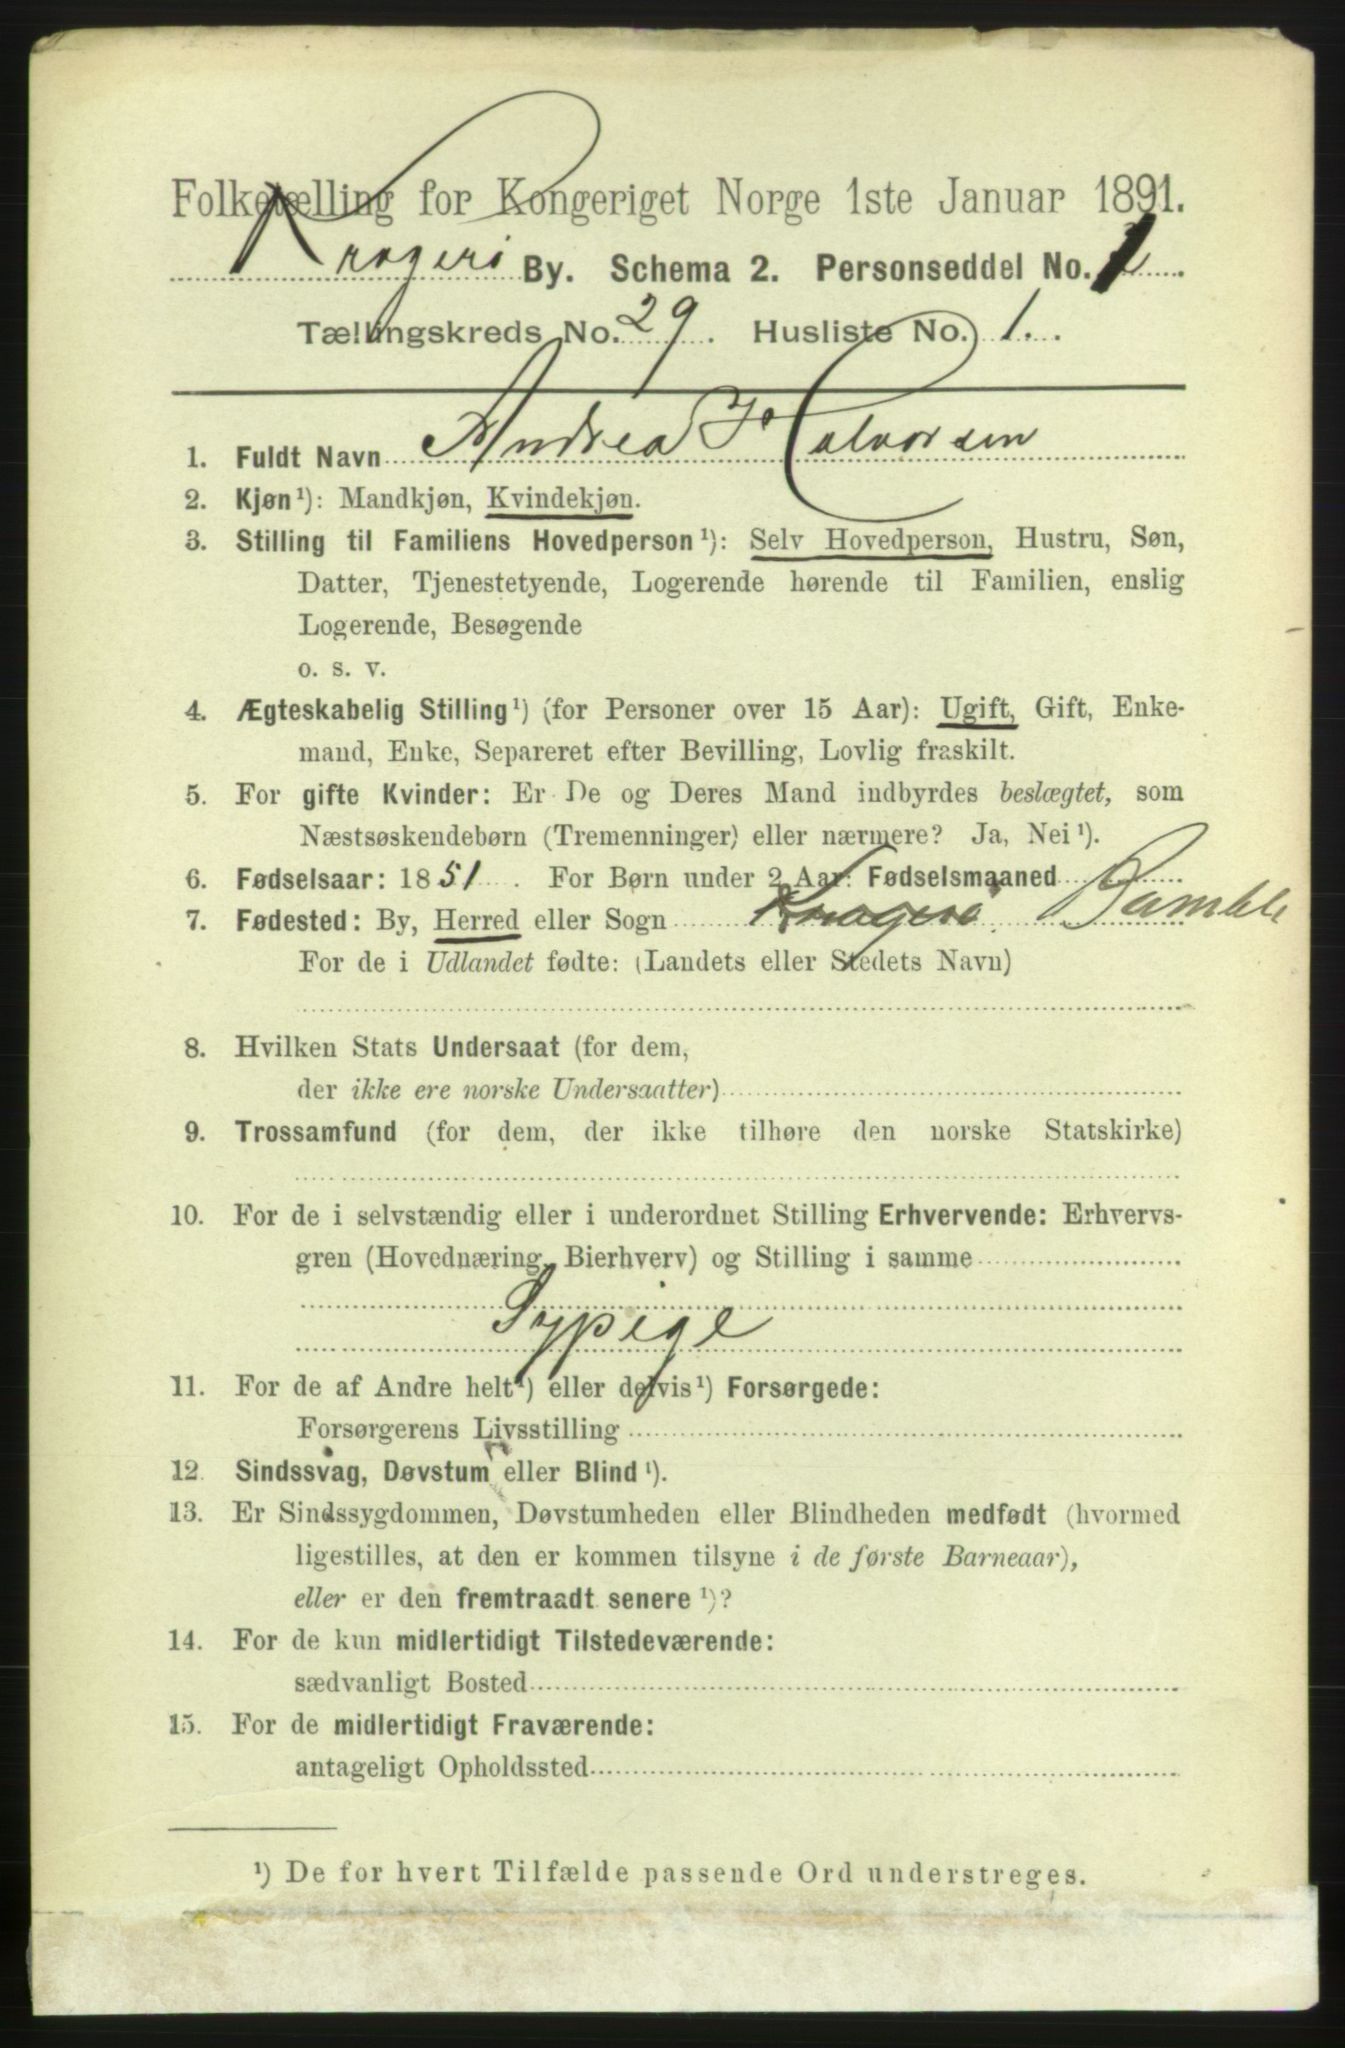 Folketælling for Kongeriget Norge 1ste Januar 1891.
Kragerø By. Schema 2. Personseddel No. 1
Tællingskreds No. 29. Husliste No. 1.
1. Fuldt Navn Andrea Halvorsen
2. Kjøn¹): Mandkjøn, Kvindekjøn.
3. Stilling til Familiens Hovedperson¹): Selv Hovedperson, Hustru, Søn,
Datter, Tjenestetyende, Logerende hørende til Familien, enslig
Logerende, Besøgende
o. s. v.
4. Ægteskabelig Stilling¹) (for Personer over 15 Aar): Ugift, Gift, Enke-
mand, Enke, Separeret efter Bevilling, Lovlig fraskilt.
5. For gifte Kvinder: Er De og Deres Mand indbyrdes beslægtet, som
Næstsøskendebørn (Tremenninger) eller nærmere? Ja, Nei¹).
6. Fødselsaar: 1851. For Børn under 2 Aar: Fødselsmaaned
7. Fødested: By, Herred eller Sogn Kragerø Bamble
For de i Udlandet fødte: (Landets eller Stedets Navn)
8. Hvilken Stats Undersaat (for dem,
der ikke ere norske Undersaatter)
9. Trossamfund (for dem, der ikke tilhøre den norske Statskirke)
10. For de i selvstændig eller i underordnet Stilling Erhvervende: Erhvervs-
gren (Hovednæring, Bierhverv) og Stilling i samme
Sypige
11. For de af Andre helt¹) eller delvis¹) Forsørgede:
Forsørgerens Livsstilling
12. Sindssvag, Døvstum eller Blind¹).
13. Er Sindssygdommen, Døvstumheden eller Blindheden medfødt (hvormed
ligestilles, at den er kommen tilsyne i de første Barneaar),
eller er den fremtraadt senere¹)?
14. For de kun midlertidigt Tilstedeværende:
sædvanligt Bosted
15. For de midlertidigt Fraværende:
antageligt Opholdssted
¹) De for hvert Tilfælde passende Ord understreges.